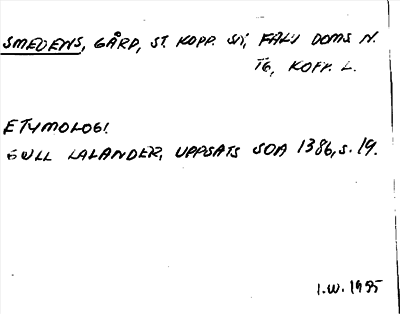 SMEDENS, GÅRD, ST. KOPP. SN, FALU DOMS N.
TG, KOPP. L.
ETYMOLOGI.
GULL LALANDER, UPPSATS SOA 1386, S. 19.
I.W. 1995